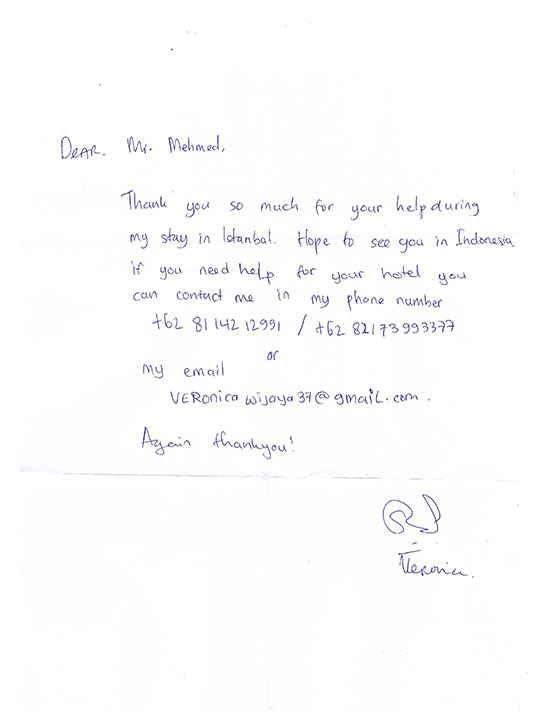 DEAR. Mr. Mehmed,
Thank you so much for your help during
my stay in Istanbal. Hope to see you in Indonesia.
if you need help for your hotel you
can contact me in my phone number
+62 81 142 12991 / +62 82173993377
or
my email
VERonica wijaya37@gmaiL.com.
Again thankyou!
Veronica.